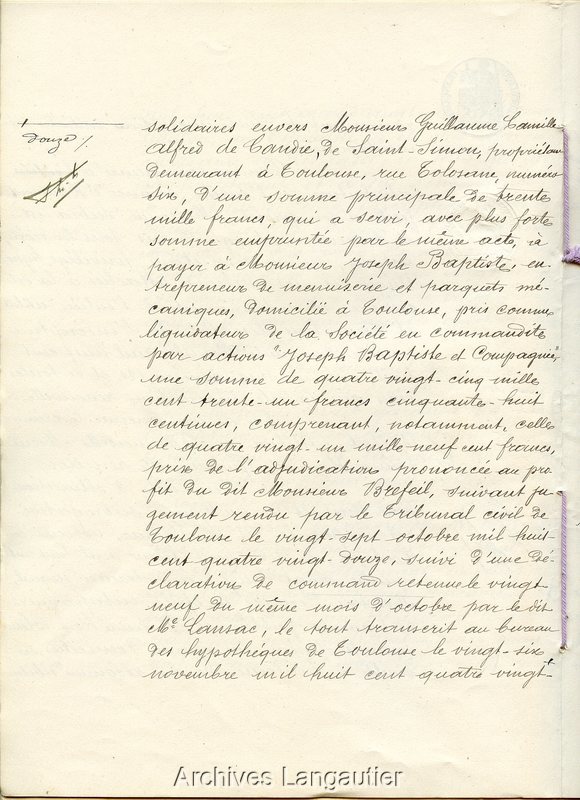 solidaires envers Monsieur Guillaume Camille
Alfred de Candie, de Saint-Simon, propriétaire
demeurant à Toulouse, rue Tolosane, numéro
six, d'une somme principale de trente
mille francs, qui a servi, avec plus forte
somme empruntée par le même acte, à
payer à Monsieur Joseph Baptiste, en-
trepreneur de menuiserie et parquets mé-
caniques, domicilié à Toulouse, pris comme
liquidateur de la Société en commandite
par actions "Joseph Baptiste et Compagnie",
une somme de quatre vingt-cinq mille
cent trente-un francs cinquante-huit
centimes, comprenant, notamment, celle
de quatre vingt-un mille neuf cent francs,
prix de l'adjudication prononcée au pro-
fit du dit Monsieur Brefeil, suivant ju-
gement rendu par le Tribunal civil de
Toulouse le vingt-sept octobre mil huit
cent quatre vingt-douze, suivi d'une dé-
claration de command retenue le vingt
neuf du même mois d'octobre par le dit
Me Lansac, le tout transcrit au bureau
des hypothèques de Toulouse le vingt-six
novembre mil huit cent quatre vingt-
douze /.
Archives Langautier